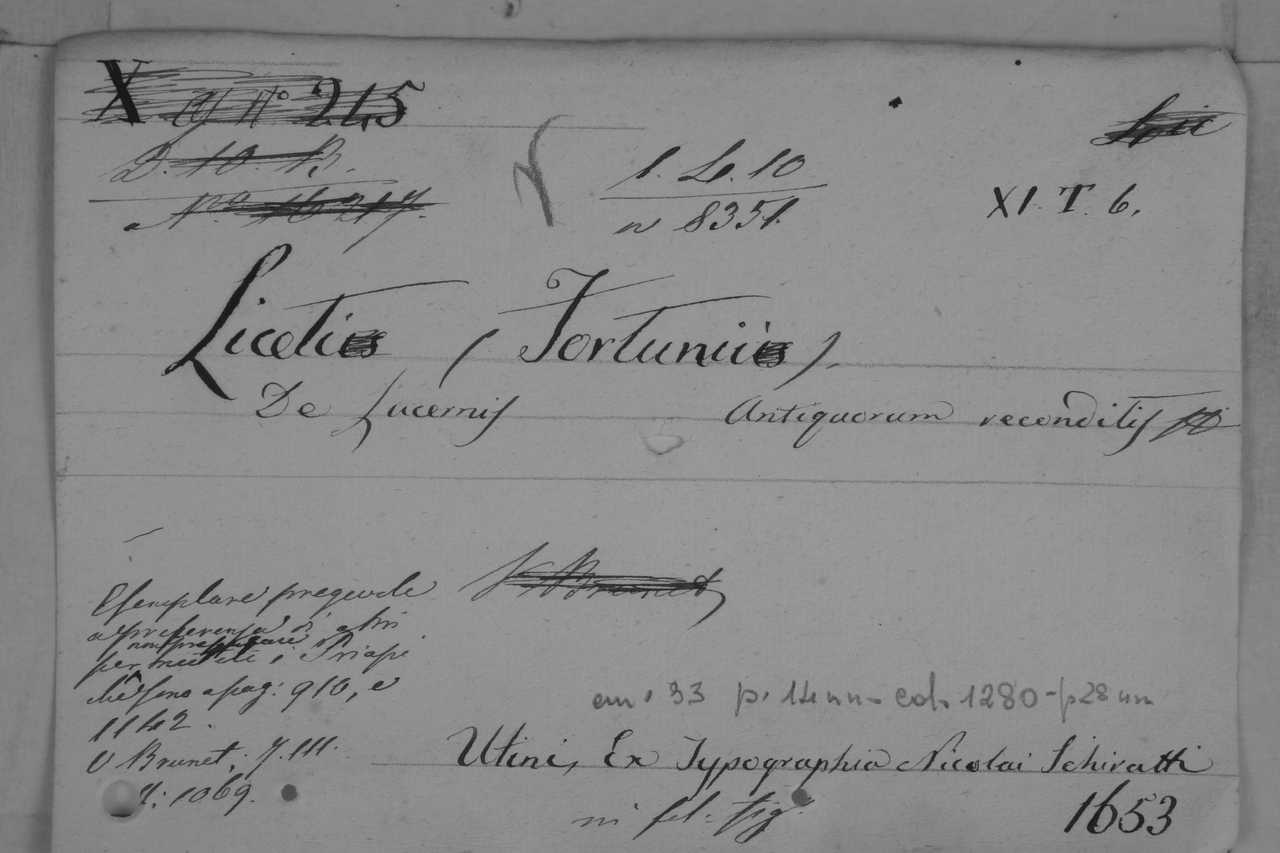 X 245
D. 10. B.
N.º 16217.
1. L. 10
n 8351.
XI. T. 6.
Liceti (Fortunii).
De Lucernis Antiquorum reconditis
V Brunet
Esemplare pregevole
a preferenza d' altri
per i Priapi
a pag: 910, e
1142.
V Brunet, T. III.
1069.
cm. 33 p. 14 nn - col. 1280 - p 28 nn
Utini, Ex Typographia Nicolai Schiratti
in fol. fig.
1653